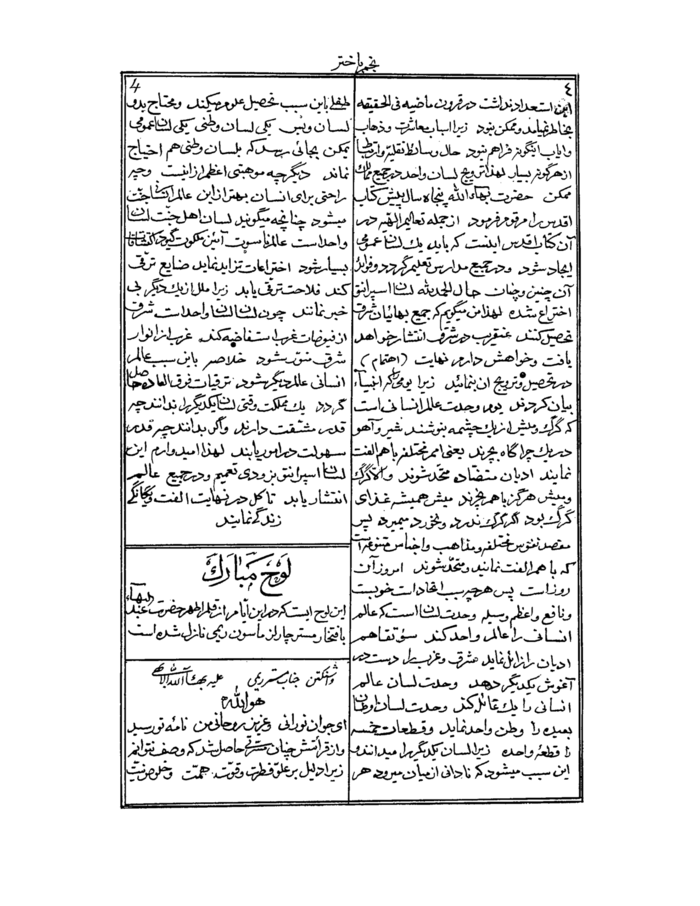 نجم باختر
٤
4
این استعداد نداشت در قرون ماضیه فی الحقیقه
بخاطر نمیآمد و ممکن نبود زیرا اسباب معاشرت و ذهاب
و ایاب اینگونه فراهم نبود حال وسائط نقلیه و ارتباط
از هر گونه بسیار لهذا ترویج لسان واحد در جمیع ممالک
ممکن حضرت بهاءالله پنجاه سال پیش کتاب
اقدس را مرقوم فرمود از جمله تعالیم الهیه در
آن کتاب اقدس اینست که باید یک لسان عمومی
ایجاد شود و در جمیع مدارس تعلیم گردد و فوائد
آن چنین و چنان حال الحمدلله لسان اسپرانتو
اختراع شده لهذا من میگویم که جمیع بهائیان شرق
تحصیل کنند عنقریب در شرق انتشار خواهد
یافت و خواهش دارم نهایت (اهتمام)
در تحصیل و ترویج آن بنمائید زیرا یومی که انبیاء
بیان کردند یوم وحدت عالم انسانی است
که گرگ و میش از یک چشمه بنوشند شیر و آهو
در یک چراگاه بچرند یعنی امم مختلفه با هم الفت
نمایند ادیان متضاده متحد شوند والا گرگ
و میش هرگز با هم نچرند میش همیشه غذای
گرگ بود اگر گرگ ندرد و نخورد میمیرد پس
مقصد نفوس مختلفه و مذاهب و اجناس متنوعه است
که با هم الفت نمایند و متحد شوند امروز آن
روز است پس هر چه سبب اتحاد است خوبست
و نافع و اعظم وسیله وحدت لسان است که عالم
انسانی را عالم واحد کند سوء تفاهم
ادیان را زائل نماید شرق و غرب را دست در
آغوش یکدیگر دهد وحدت لسان عالم
انسانی را یک عائله کند وحدت لسان اوطان
بعیده را وطن واحد نماید و قطعات خمسه
را قطعهٔ واحده زیرا لسان یکدیگر را میدانند و
این سبب میشود که نادانی از میان میرود هر
طفلی باین سبب تحصیل علوم میکند و محتاج بدو
لسان و بس یکی لسان وطنی یکی لسان عمومی
ممکن بجائی رسد که بلسان وطنی هم احتیاج
نماند دیگر چه موهبتی اعظم از اینست و چه
راحتی برای انسان بهتر از این عالم انسان جنت
میشود چنانچه میگویند لسان اهل جنت لسان
واحد است عالم ناسوت آئین ملکوت گیرد اکتشافات
بسیار شود اختراعات تزاید نماید صنایع ترقی
کند فلاحت ترقی یابد زیرا ملل از یک دیگر بی
خبر نمانند چون لسان لسان واحد است شرق
از فیوضات غرب استفاضه کند غرب از انوار
شرق منور شود خلاصه باین سبب عالم
انسانی عالم دیگر شود ترقیات فوق العاده حاصل
گردد یک مملکت وقتی لسان یکدیگر را ندانند چه
قدر مشقت دارند و اگر بدانند چه قدر
سهولت در امر یابند لهذا امیدوارم این
لسان اسپرانتو بزودی تعمیم و در جمیع عالم
انتشار یابد تا کل در نهایت الفت و یگانگی
زندگی نمایند
لوح مبارک
این لوح است که در این ایام از قلم اطهر حضرت عبدالبهاء
بافتخار مستر چارلز ماسون ریمی نازل شده است
واشنگتن جناب مستر ریمی علیه بهاء الله الابهی
هوالله
ای جوان نورانی و عزیز روحانی من نامهٔ تو رسید
و از قرائتش چنان مسرتی حاصل شد که وصف نتوانم
زیرا دلیل بر علو فطرت و قوت همت و خلوص نیت